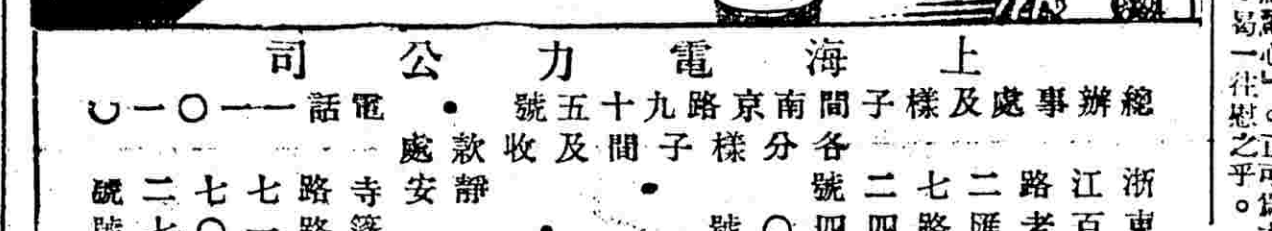 上海電力公司
總辦事處及樣子間南京路九十五號 • 電話一一〇一〇
各分樣子間及收款處
浙江路二七二號 • 靜安寺路七七二號
東百老匯路四四〇號 • 路一〇七號
渴一往慰之乎。